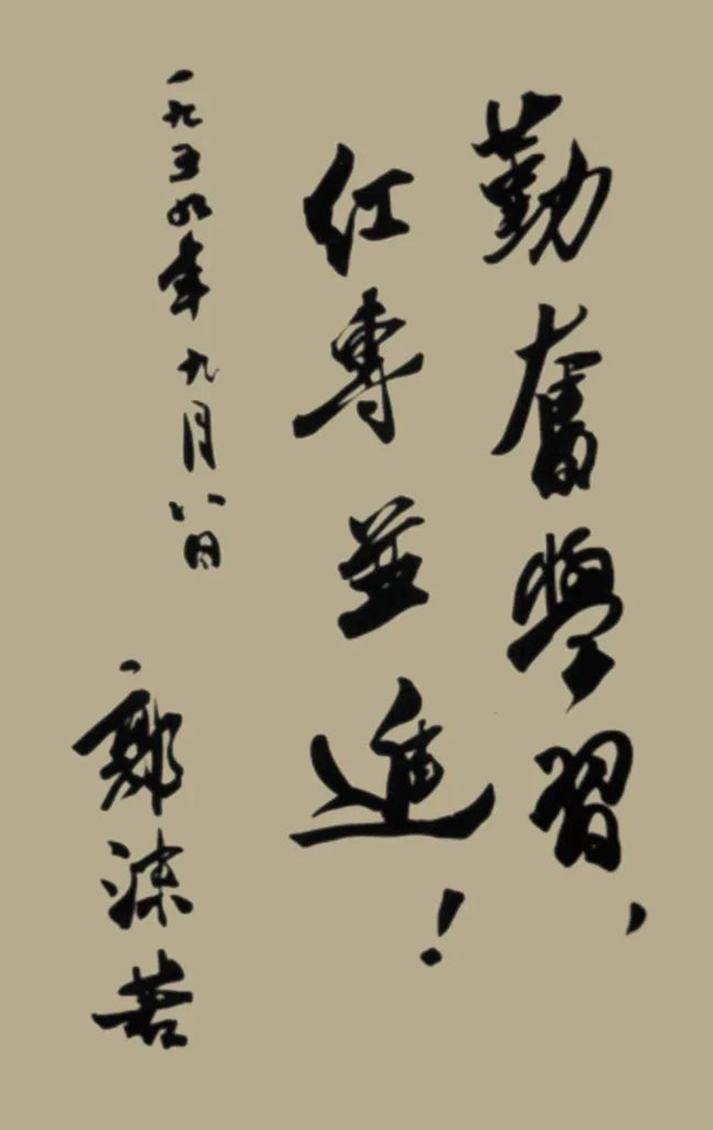 勤奮學習，
紅專並進！
一九五九年九月八日
郭沫若